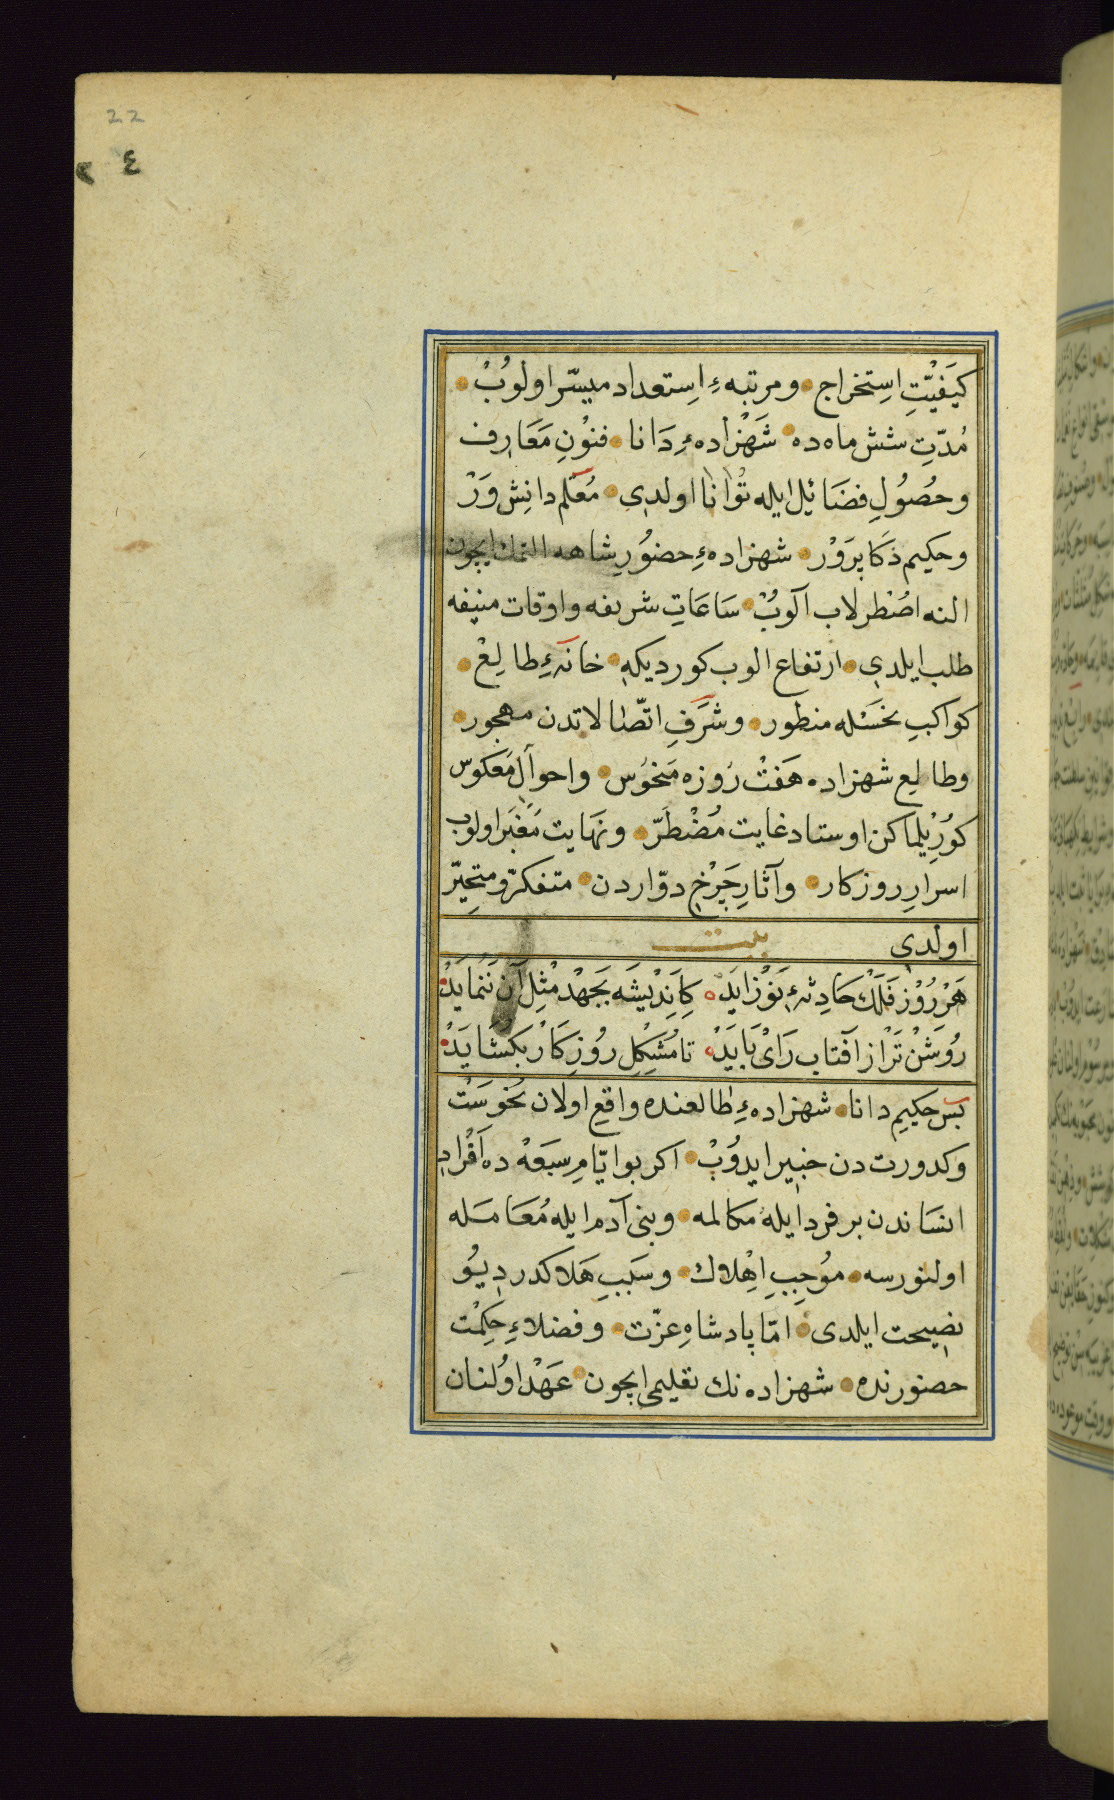 22
٤
كيَفيّتِ اِستخراج ومرتبهءِ اِستعداد ميسّر اولوُبْ
مُدّتِ شش ماه ده شَهْزادهءِ دَانا فنوُنِ مَعَارِف
وحُصُولِ فضَائل ايله تُوانا اولدى مُعَلّم دانِش وَرْ
وحكيم ذكَا پَروَرْ شهزادهءِ حضوُرِ شاهه التمك ايچون
النه اصْطرلاب آلوُبْ سَاعَاتِ شريفه واوقات منيفه
طلب ايلدى ارتفاع الوب كورديكه خانهءِ طالِعْ
كواكبِ نحَسْله منظور وشَرَفِ اتّصالاتدن مهجور
وطالع شهزاده هَفتْ رُوزه مَنحُوس واحوالِ مَعكوس
كوُرِيلماكن اوستاد غايت مُضْطَرّ ونهَايت مَُغبَر اولوب
اسرارِ روزكار وآثارِ چَرْخِ دوّاردن متفكرّ ومتحِيّر
اولدى بيت
هَرْ رُوْز فَلَكْ حَادِثهءِ نَوْ زايَدْ كِاَنِديْشَه بَجَهْد مْثلِ آن نَنُمايَدْ
رُوشَنْ تَرْ از آفتاب رَاىْ بَايَدْ تا مُشكِلِ روُزِكَارْ بكشَايَدْ
پس حكيمِ دانا شهزادهءِ طالعنده واقع اولان نحُوسَت
وكدورت دن خبير ايدوُبْ اكر بو ايّامِ سَبَعَهْ ده اَفْرادِ
انسَاندن بر فرد ايله مكالمه وبنى آدم ايله مُعَامَله
اولنورسه موُجِبِ اِهْلاك وسَبَبِ هَلاكدر ديوُ
نصِيحت ايلدى امّا پادشاهِ عزّت وفضلاءِ حِكمْت
حضورنده شهزاده نك تعليمى ايچون عَهْد اوُلنان